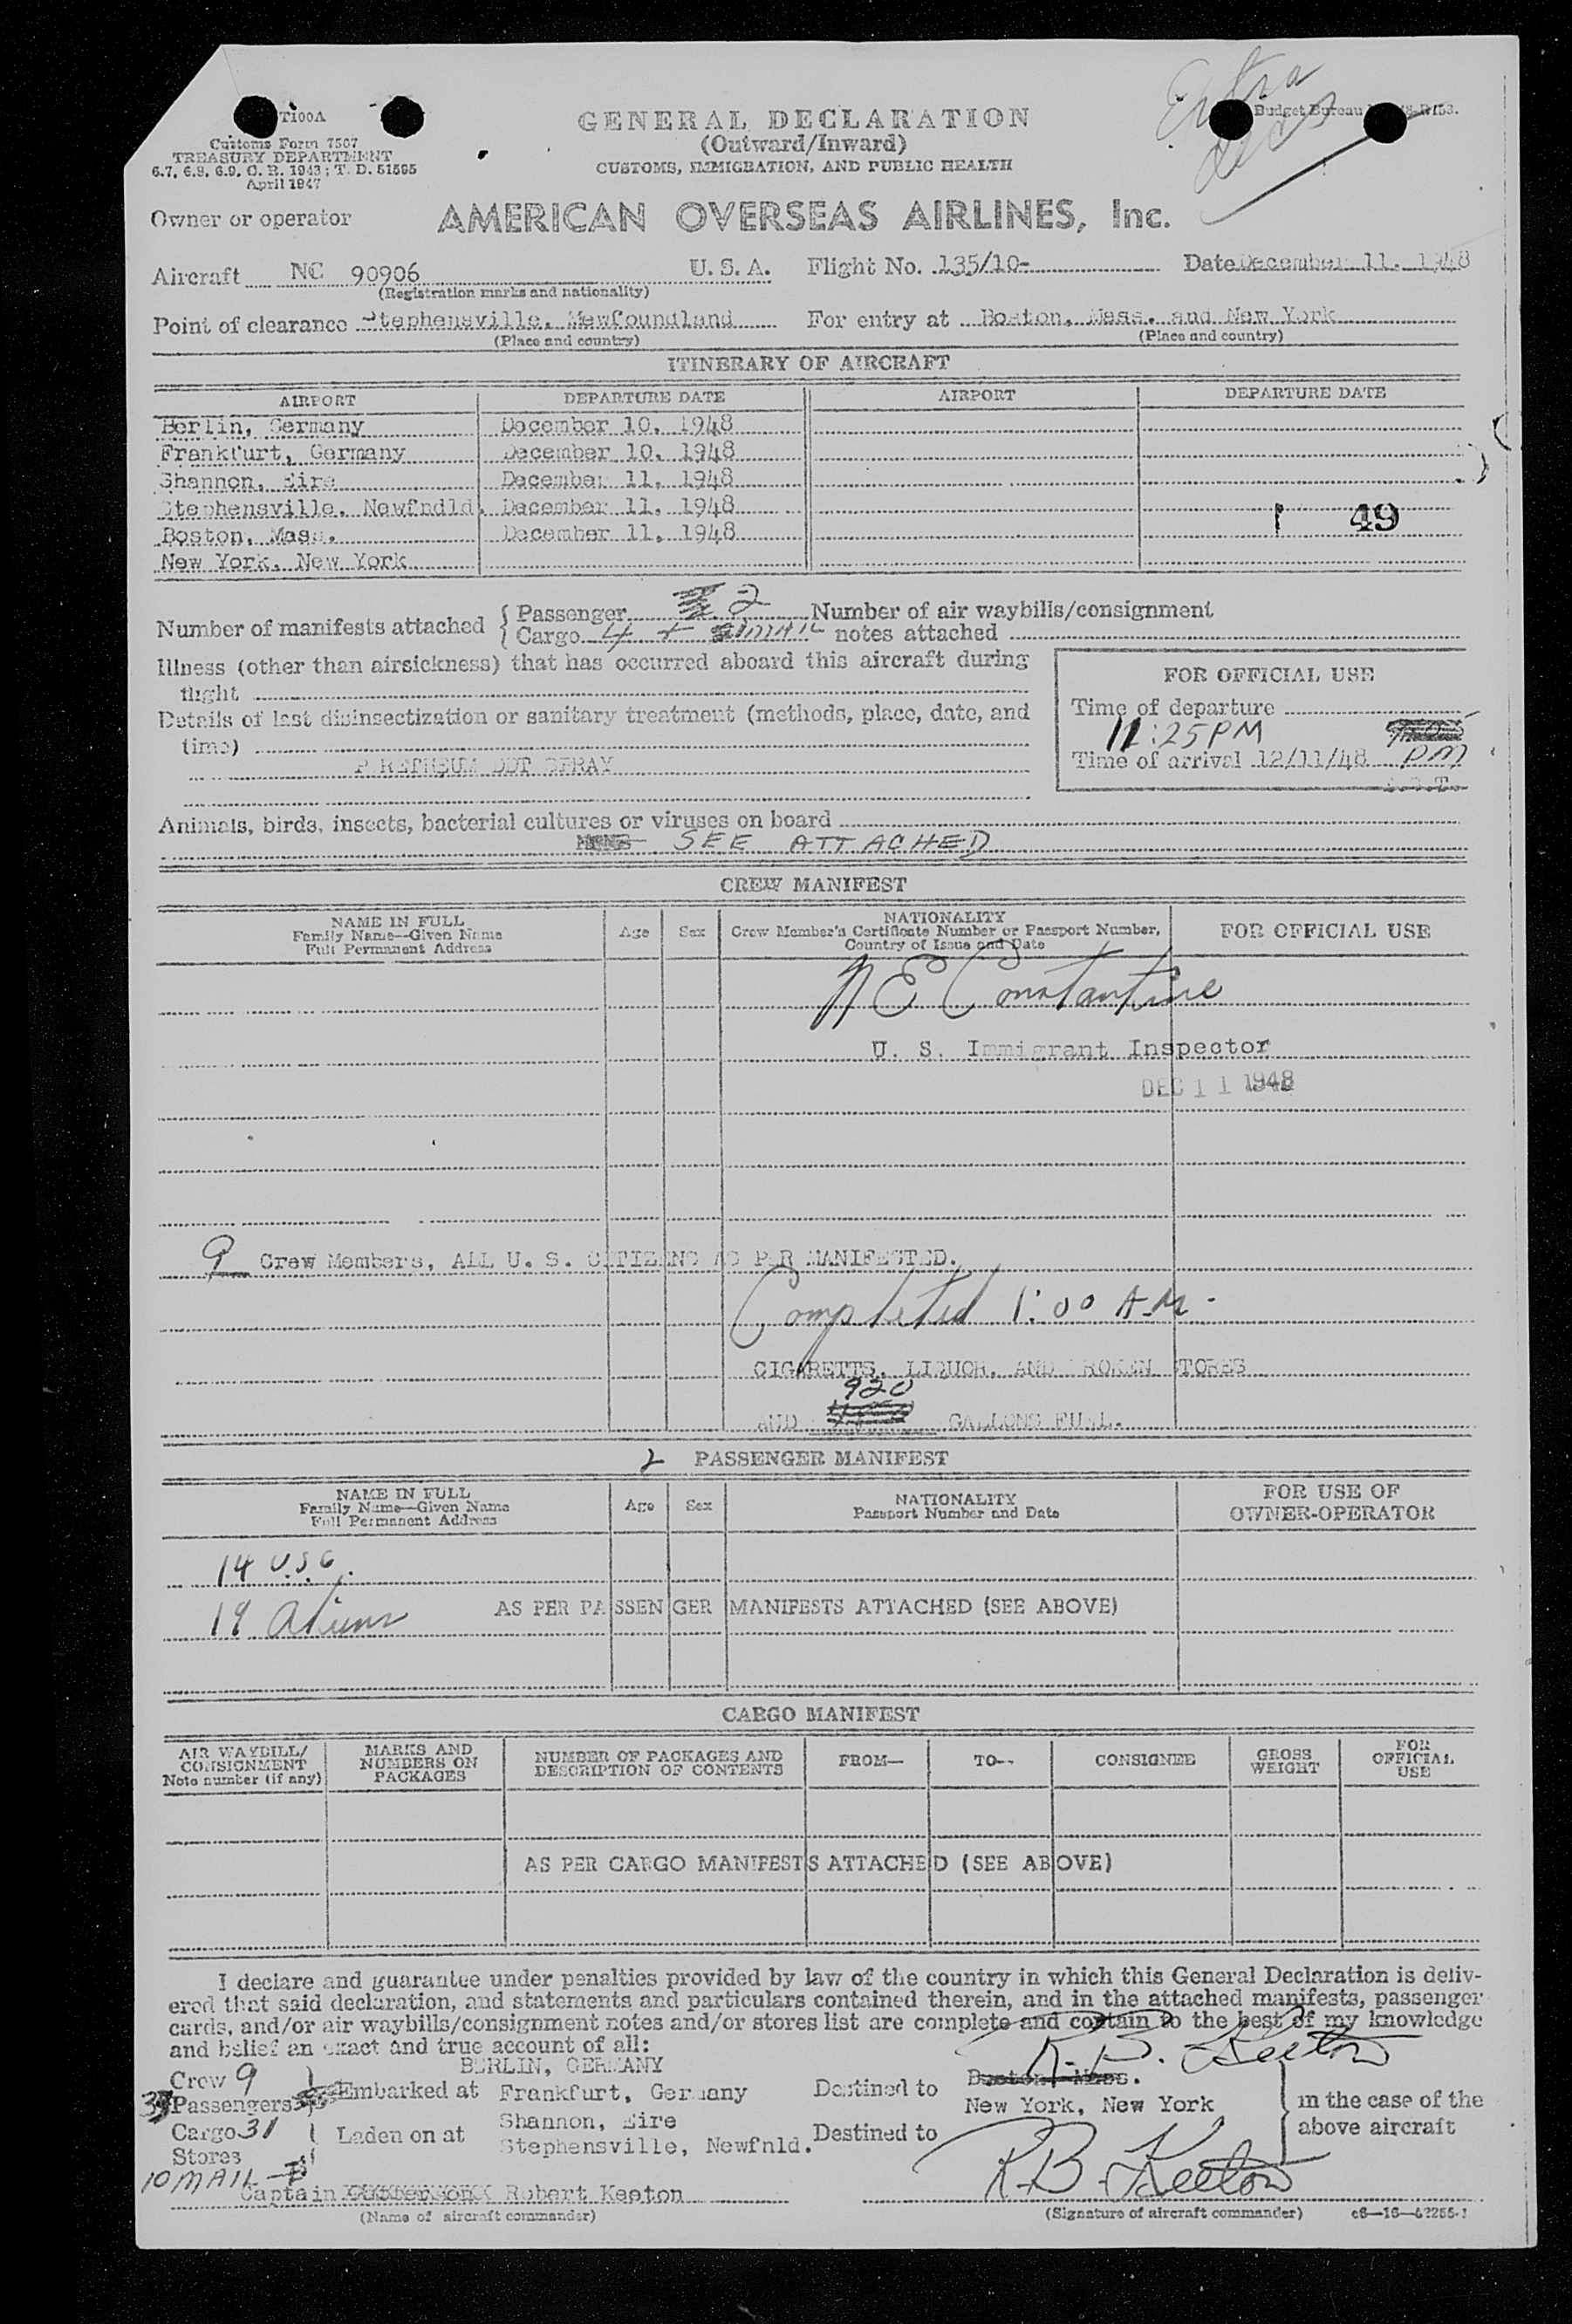 T100A
Customs Form 7507
TREASURY DEPARTMENT
6.7, 6.8, 6.9, C. R. 1943; T. D. 51595
April 1947
GENERAL DECLARATION
(Outward/Inward)
CUSTOMS, IMMIGRATION, AND PUBLIC HEALTH
Extra
Budget Bureau
Owner or operator AMERICAN OVERSEAS AIRLINES, Inc.
Aircraft NC 90906 U. S. A. Flight No. 135/10- Date December 11, 1948
(Registration marks and nationality)
Point of clearance Stephensville, Newfoundland For entry at Boston, Mass. and New York
(Place and country) (Place and country)
ITINERARY OF AIRCRAFT
AIRPORT DEPARTURE DATE AIRPORT DEPARTURE DATE
Berlin, Germany December 10, 1948
Frankfurt, Germany December 10, 1948
Shannon, Eire December 11, 1948
Stephensville, Newfndld. December 11, 1948
49
Boston, Mass. December 11, 1948
New York, New York
Number of manifests attached { Passenger 2 Number of air waybills/consignment
Cargo 4 + notes attached
Illness (other than airsickness) that has occurred aboard this aircraft during
flight
Details of last disinsectization or sanitary treatment (methods, place, date, and
time)
DDT SPRAY
FOR OFFICIAL USE
Time of departure
11:25 PM
Time of arrival 12/11/48 PM
Animals, birds, insects, bacterial cultures or viruses on board
SEE ATTACHED
CREW MANIFEST
NAME IN FULL Age Sex NATIONALITY FOR OFFICIAL USE
Family Name—Given Name Crew Member's Certificate Number or Passport Number,
Full Permanent Address Country of Issue and Date
N E Constantine
U. S. Immigrant Inspector
DEC 11 1948
9 Crew Members, ALL U. S. CITIZENS AS PER MANIFESTED.
Completed 1:00 AM.
CIGARETTS, LIQUOR, AND BROKEN STORES
920
AND GALLONS FUEL.
2 PASSENGER MANIFEST
NAME IN FULL Age Sex NATIONALITY FOR USE OF
Family Name—Given Name Passport Number and Date OWNER-OPERATOR
Full Permanent Address
14 U.S.C.
19 Aliens AS PER PASSENGER MANIFESTS ATTACHED (SEE ABOVE)
CARGO MANIFEST
AIR WAYBILL/ MARKS AND NUMBER OF PACKAGES AND FROM— TO-- CONSIGNEE GROSS FOR
CONSIGNMENT NUMBERS ON DESCRIPTION OF CONTENTS WEIGHT OFFICIAL
Note number (if any) PACKAGES USE
AS PER CARGO MANIFESTS ATTACHED (SEE ABOVE)
I declare and guarantee under penalties provided by law of the country in which this General Declaration is deliv-
ered that said declaration, and statements and particulars contained therein, and in the attached manifests, passenger
cards, and/or air waybills/consignment notes and/or stores list are complete and contain to the best of my knowledge
and belief an exact and true account of all:
R. B. Keeton
BERLIN, GERMANY
Crew 9
Passengers Embarked at Frankfurt, Germany Destined to Boston, Mass.
New York, New York in the case of the
Cargo 31 Laden on at Shannon, Eire Destined to above aircraft
Stores Stephensville, Newfnld.
10 MAIL
Captain Robert Keeton R B Keeton
(Name of aircraft commander) (Signature of aircraft commander) c6—16—52255-1